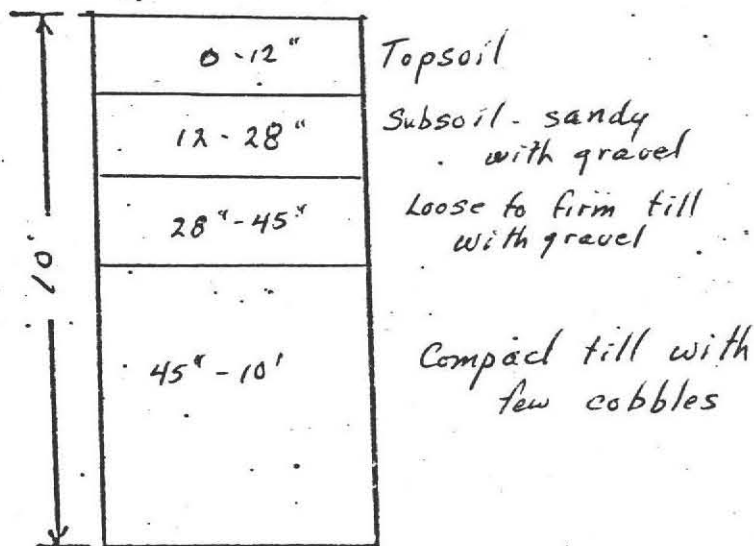 0-12" Topsoil
12-28" Subsoil - sandy
with gravel
28"-45" Loose to firm till
with gravel
10'
45"-10' Compact till with
few cobbles